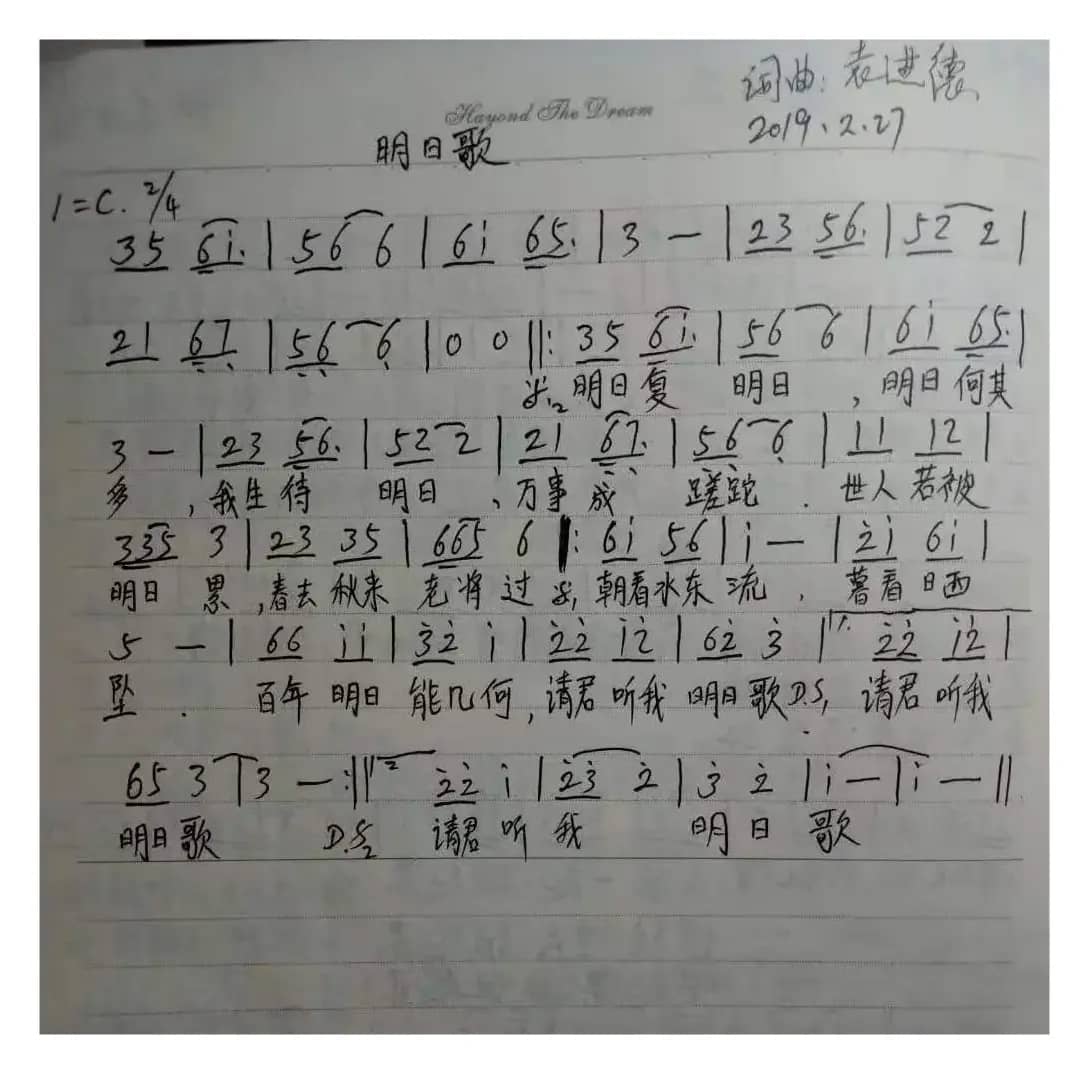 词曲: 袁进德
Hayond The Dream
2019.2.27
明日歌
1=C. 2/4
35 6i. | 56 6 | 6i 65. | 3 — | 23 56. | 52 2 |
21 67. | 56 6 | 0 0 ||: 35 6i. | 56 6 | 6i 65. |
明日复 明日 , 明日何其
3 — | 23 56. | 52 2 | 21 67. | 56 6 | 11 12 |
多 , 我生待 明日 、万事成 蹉跎 . 世人若被
335 3 | 23 35 | 665 6 |: 6i 56 | i — | 2̇i 6i |
明日 累 ,春去秋来 老将过 朝看水东流 . 暮看日西
5 — | 66 ii | 3̇2̇ i | 2̇2̇ i2̇ | 62̇ 3̇ | 1. 2̇2̇ i2̇ |
坠 . 百年 明日 能几何,请君听我 明日歌 D.S, 请君听我
65 3 | 3 — :|| 2 2̇2̇ i | 2̇3̇ 2̇ | 3̇ 2̇ | i — | i — ||
明日歌 D.S2 请君听 我 明日 歌